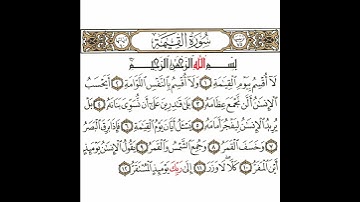 سُورَةُ الْقِيَامَةِ
بِسْمِ اللَّهِ الرَّحْمَٰنِ الرَّحِيمِ
لَا أُقْسِمُ بِيَوْمِ الْقِيَامَةِ ١ وَلَا أُقْسِمُ بِالنَّفْسِ اللَّوَّامَةِ ٢ أَيَحْسَبُ
الْإِنسَانُ أَلَّن نَّجْمَعَ عِظَامَهُ ٣ بَلَىٰ قَادِرِينَ عَلَىٰ أَن نُّسَوِّيَ بَنَانَهُ ٤ بَلْ
يُرِيدُ الْإِنسَانُ لِيَفْجُرَ أَمَامَهُ ٥ يَسْأَلُ أَيَّانَ يَوْمُ الْقِيَامَةِ ٦ فَإِذَا بَرِقَ الْبَصَرُ
٧ وَخَسَفَ الْقَمَرُ ٨ وَجُمِعَ الشَّمْسُ وَالْقَمَرُ ٩ يَقُولُ الْإِنسَانُ يَوْمَئِذٍ
أَيْنَ الْمَفَرُّ ١٠ كَلَّا لَا وَزَرَ ١١ إِلَىٰ رَبِّكَ يَوْمَئِذٍ الْمُسْتَقَرُّ ١٢